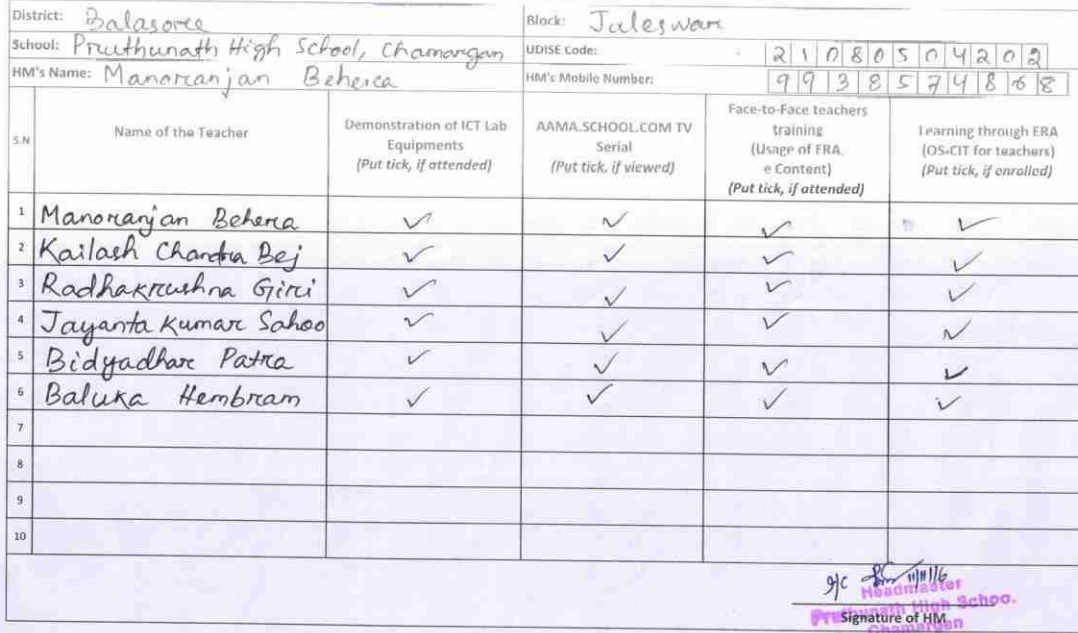 District: Balasore Block: Jaleswar
School: Pruthunath High School, Chamargan UDISE Code: 21080504202
HM's Name: Manoranjan Behera HM's Mobile Number: 9938574868
S.N Name of the Teacher Demonstration of ICT Lab Equipments (Put tick, if attended) AAMA.SCHOOL.COM TV Serial (Put tick, if viewed) Face-to-Face teachers training (Usage of ERA, e Content) (Put tick, if attended) Learning through ERA (OS-CIT for teachers) (Put tick, if enrolled)
1 Manoranjan Behera ✓ ✓ ✓ ✓
2 Kailash Chandra Bej ✓ ✓ ✓ ✓
3 Radhakrushna Giri ✓ ✓ ✓ ✓
4 Jayanta Kumar Sahoo ✓ ✓ ✓ ✓
5 Bidyadhar Patra ✓ ✓ ✓ ✓
6 Baluka Hembram ✓ ✓ ✓ ✓
7
8
9
10
I/C 11/11/16
Headmaster
Pruthunath High School.
Signature of HM
Chamargan